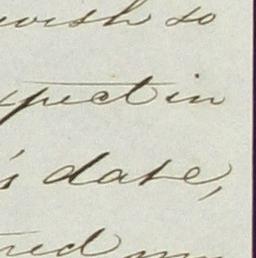 wish so
xpect in
's date,
red my